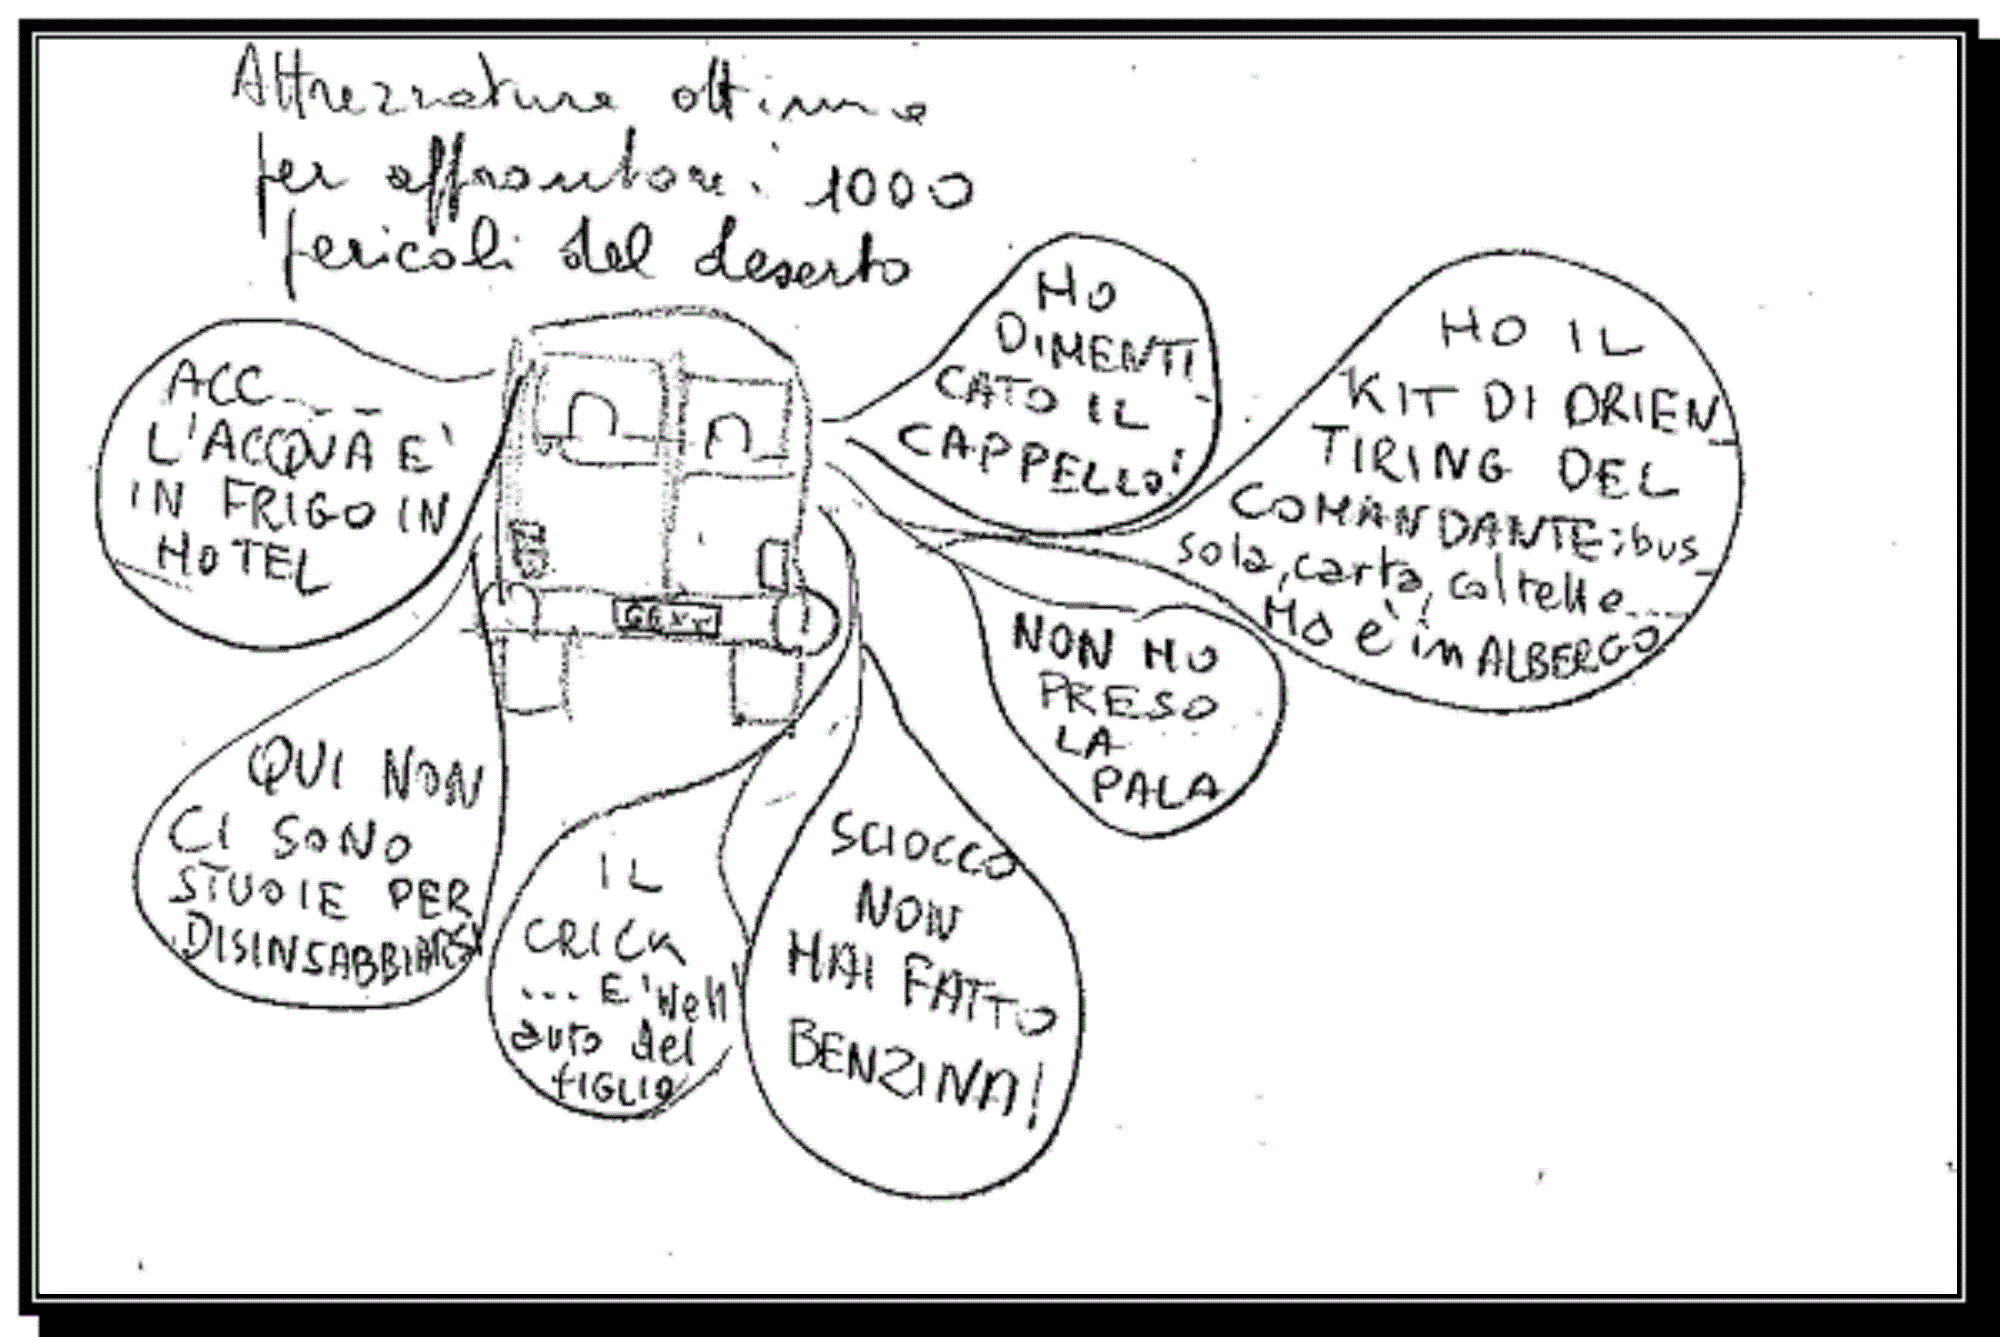 Attrezzatura ottima
per affrontare i 1000
pericoli del deserto
ACC.....
L'ACQUA E'
IN FRIGO IN
HOTEL
HO
DIMENTI
CATO IL
CAPPELLO!
HO IL
KIT DI ORIEN_
TIRING DEL
COMANDANTE: bus_
sola, carta, coltello....
MA è in ALBERGO
NON HO
PRESO
LA
PALA
QUI NON
CI SONO
STUOIE PER
DISINSABBIARSI
IL
CRICK
... E' Nell'
auto del
FIGLIO
SCIOCCO
NON
HAI FATTO
BENZINA!